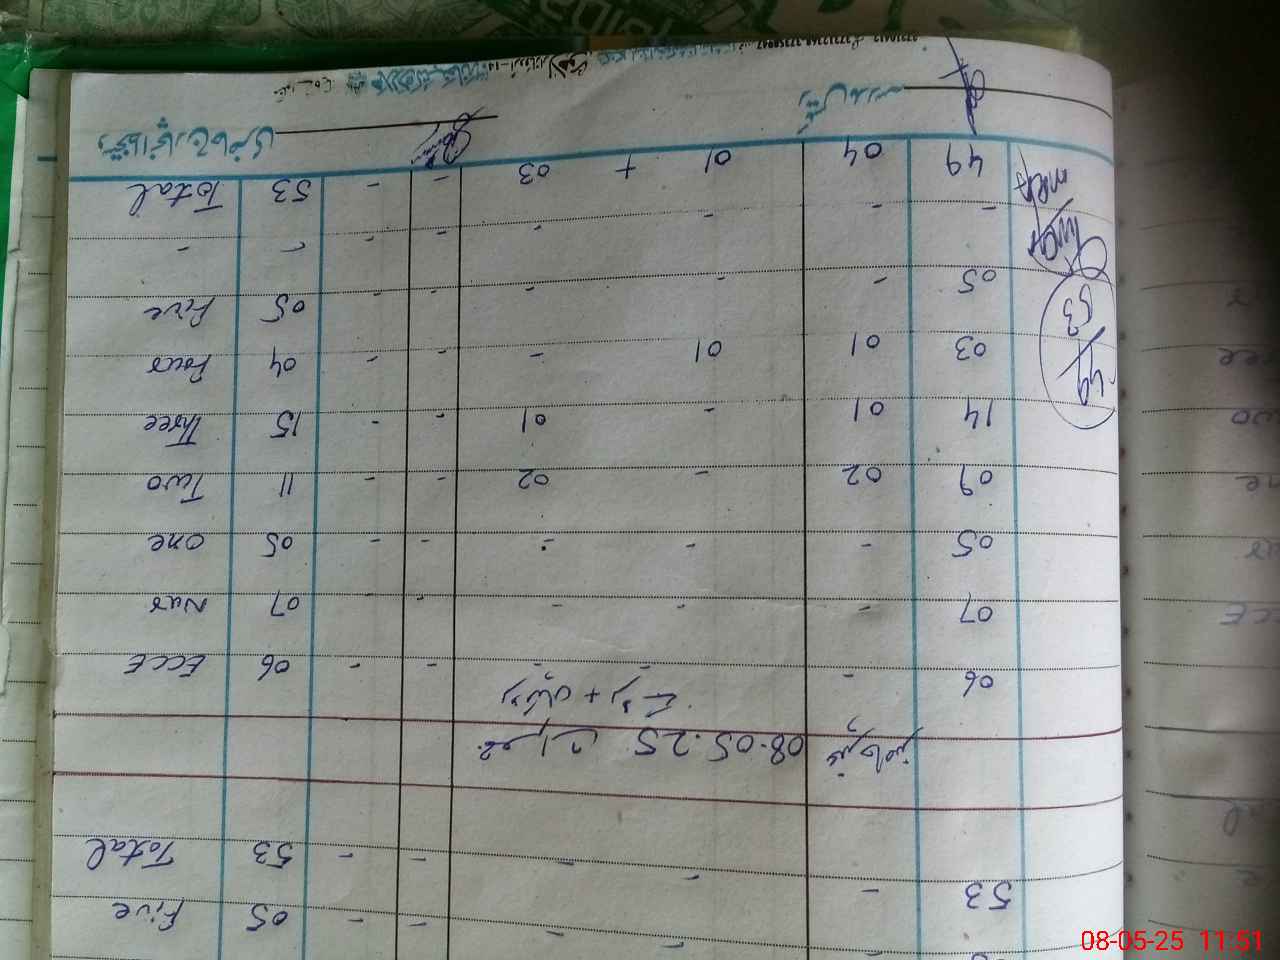 - - - - - 05 Five
53 - - - - - 53 Total
غیر حاضر 08.05.25 جمعرات
06 - - - - - 06 ECCE
07 - - - - - 07 Nur
05 - - - - - 05 One
09 02 - 02 - - 11 Two
14 01 - 01 - - 15 Three
49/53
03 01 01 - - - 04 Four
05 - - - - - 05 Five
- - - - - - - -
49 04 01 + 03 - - 53 Total
رئیس مدرسہ
دستخط انچارج حاضری
08-05-25 11:51